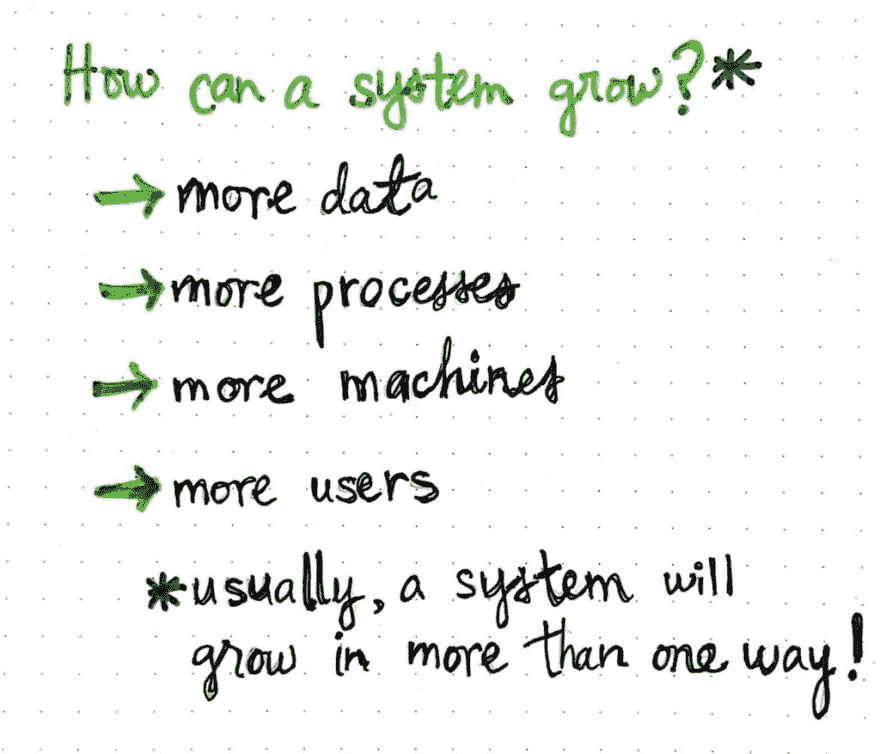 How can a system grow?*
→ more data
→ more processes
→ more machines
→ more users
*usually, a system will
grow in more than one way!